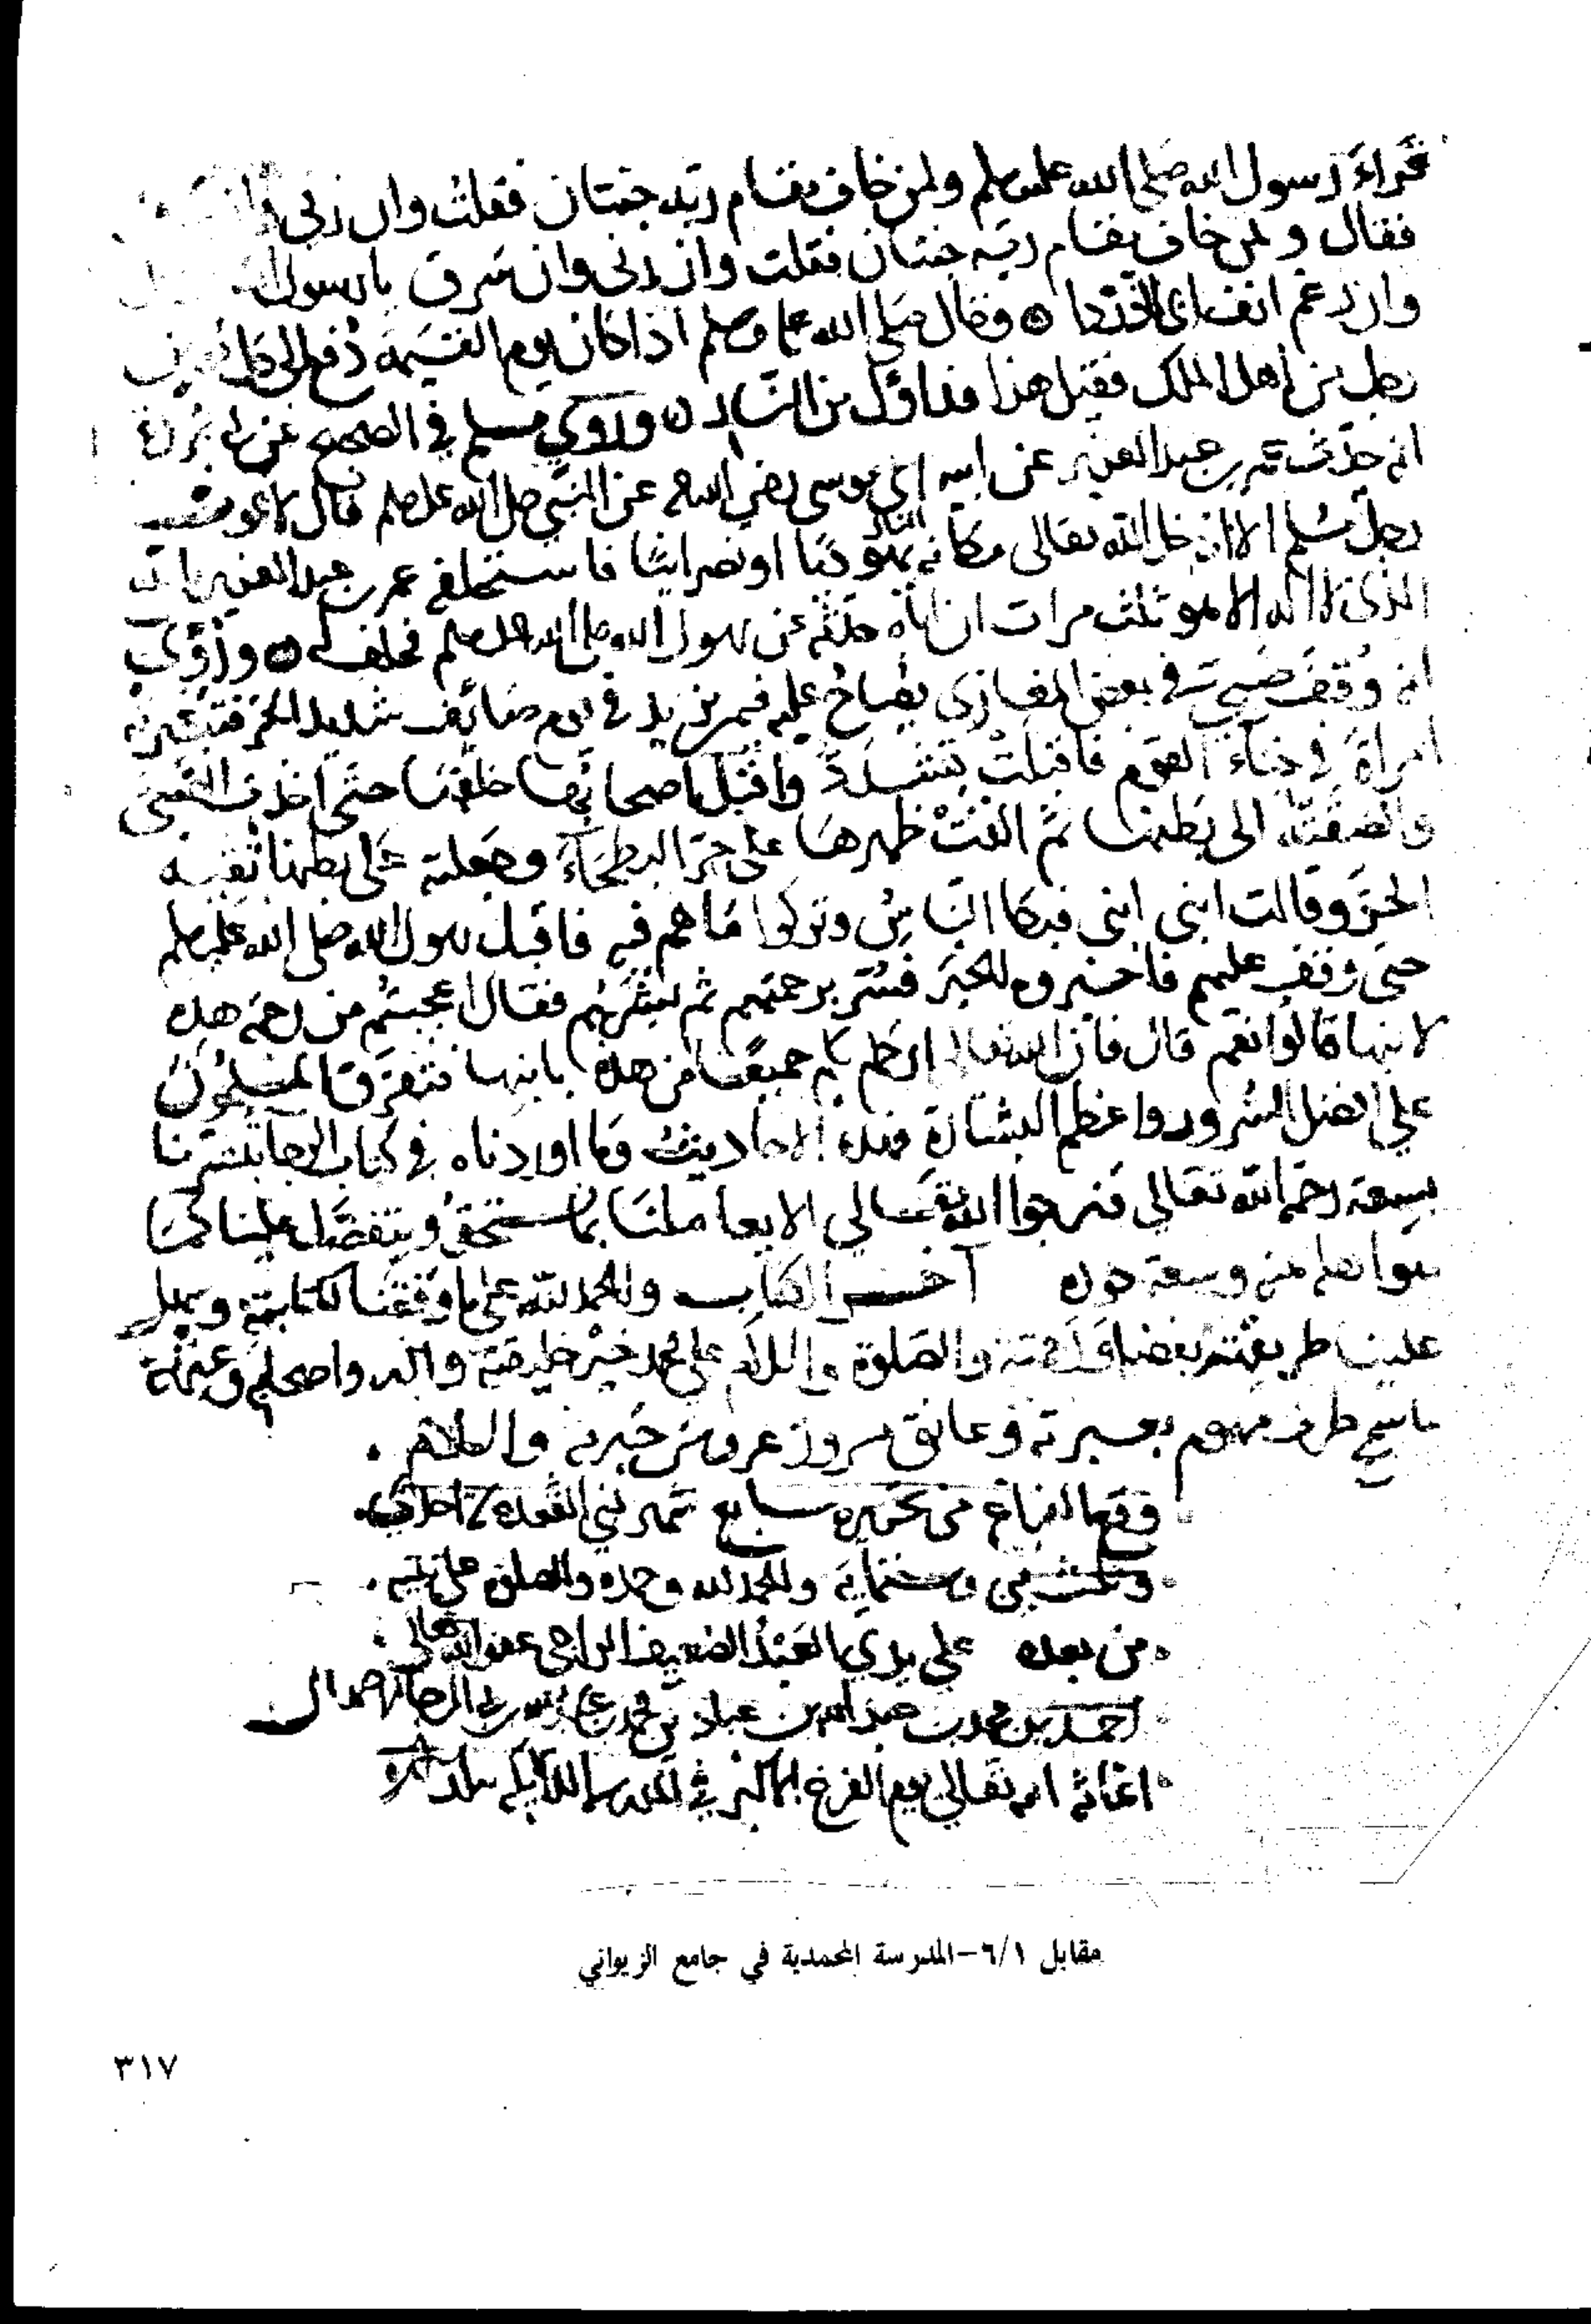 قراء رسول الله صلى الله عليه وسلم ولمن خاف مقام ربه جنتان فقلت وان زنى وان
فقال ولمن خاف مقام ربه جنتان فقلت وان زنى وان سرق يا رسول الله
وان رغم انف ابى الدرداء وقال صلى الله عليه وسلم اذا كان يوم القيمة دفع الى كل
رجل من اهل الملل فقيل هذا فداؤك من النار وروى مسلم في الصحيح عن ابى بردة
انه حدث عمر بن عبد العزيز عن ابيه ابى موسى رضي الله عنه عن النبي صلى الله عليه وسلم قال لا يموت
رجل مسلم الا ادخل الله تعالى مكانه النار يهوديا او نصرانيا فاستحلفه عمر بن عبد العزيز بالله
الذى لا اله الا هو ثلث مرات ان اباه حدثه عن رسول الله صلى الله عليه وسلم فحلف له وروى
انه وقف صبى في بعض المغازى ينادى عليه فيمن يزيد في يوم صائف شديد الحر فبصرت به
امراة في خباء القوم فاقبلت تشتد واقبل اصحابها خلفها حتى اخذت الصبى
والصقته الى بطنها ثم القت ظهرها على حر البطحاء وجعلته على بطنها تقيه
الحر وقالت ابنى ابنى فبكا الناس وتركوا ما هم فيه فاقبل رسول الله صلى الله عليه وسلم
حتى وقف عليهم فاخبروه الخبر فسر برحمتهم ثم بشرهم فقال اعجبتم من رحمة هذه
لابنها قالوا نعم قال فان الله تعالى ارحم بكم جميعا من هذه بابنها فتفرق المسلمون
على افضل السرور واعظم البشارة فهذه الاحاديث وما اوردناه في كتاب الرجا يبشرنا
بسعة رحمة الله تعالى فنرجوا الله تعالى الا يعاملنا بما نستحقه ويتفضل علينا بما
هو اهله منه وسعة جوده آخر الكتاب والحمد لله على ما وفقنا لكتابته
علينا طريقته بفضله والصلوة والسلام على محمد خير خليقته واله واصحابه وعترته
بصيرته وعانق سرور عروس خبرته والسلام
وقع الفراغ من تحريره سابع شهر ذي القعدة احدى
وثلثين وستمائة والحمد لله وحده والصلوة على نبيه
من بعده على يدي العبد الضعيف الراجى عفو الله تعالى
احمد بن محمد بن عبد الله بن عباد بن محمد
اغاثه الله تعالى يوم الفزع الاكبر في
مقابل ٦/١-المدرسة المحمدية في جامع الزيواني
٣١٧